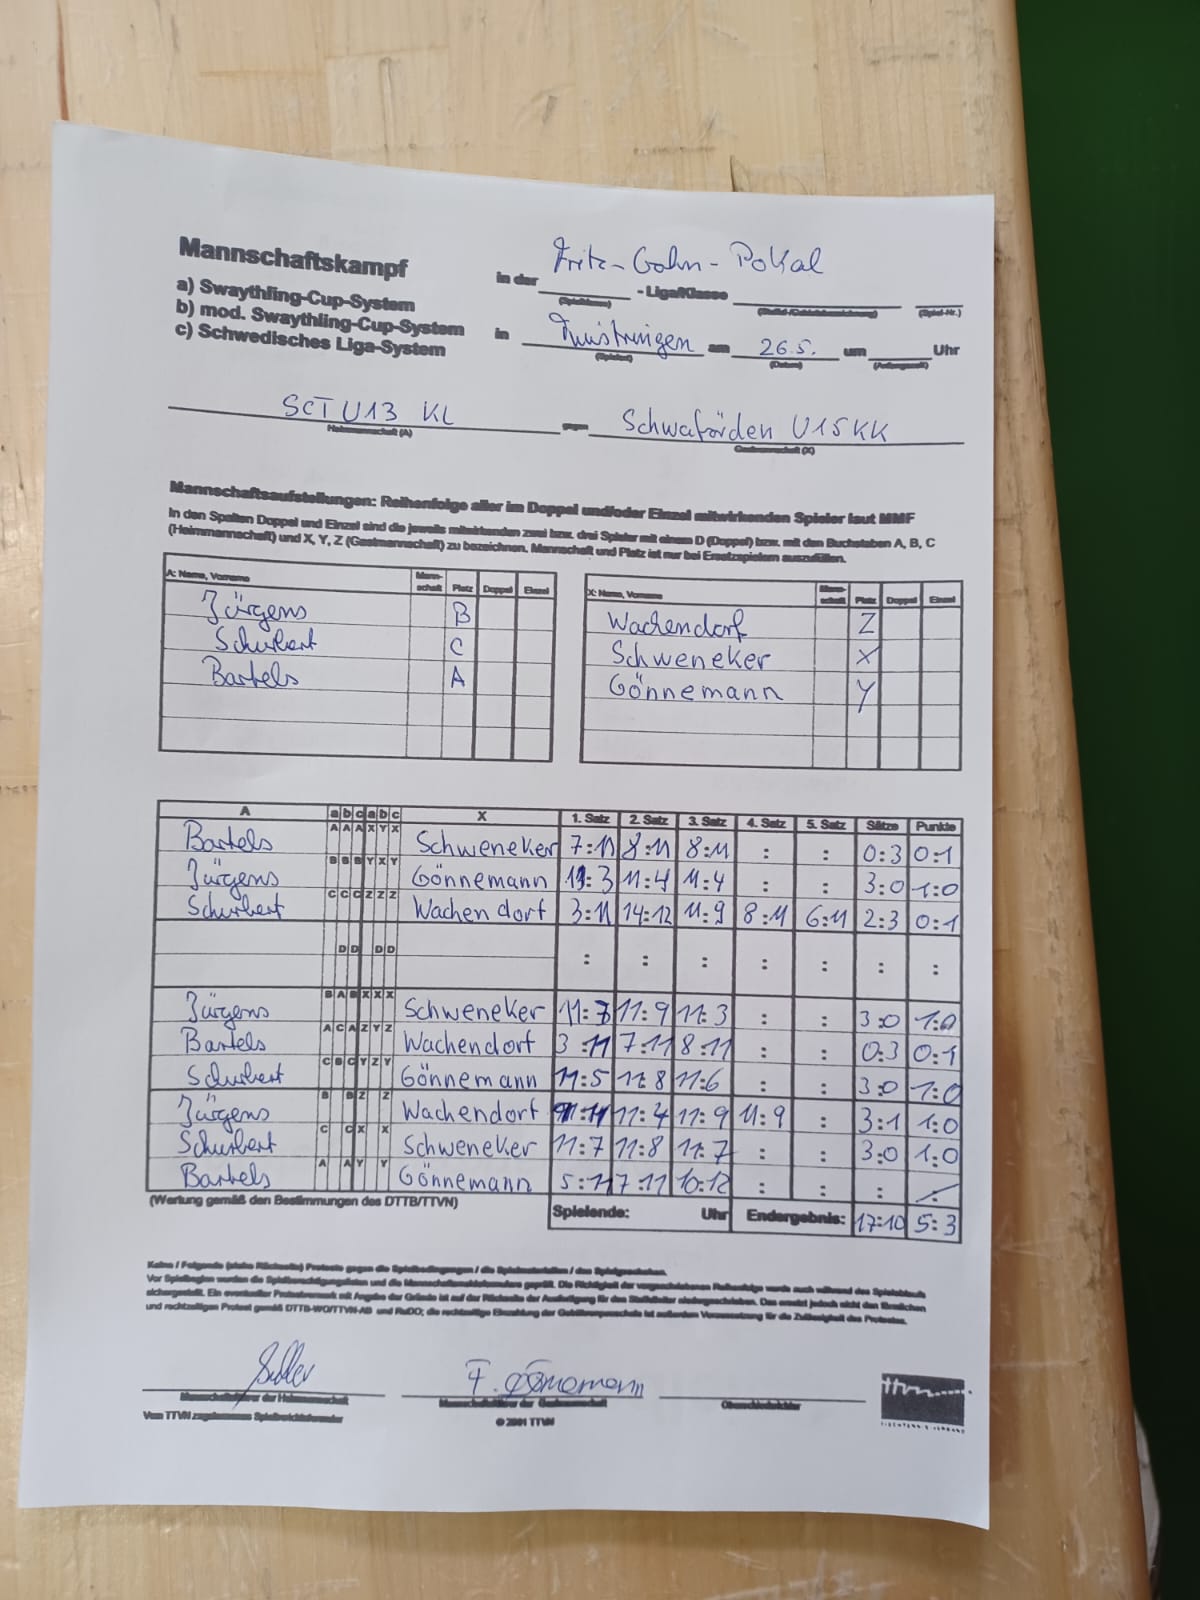 Mannschaftskampf
a) Swaythling-Cup-System
b) mod. Swaythling-Cup-System
c) Schwedisches Liga-System
Fritz-Gohn-Pokal
in der - Liga/Klasse
(Spielklasse) (Staffel-/Gebietsbezeichnung) (Spiel-Nr.)
in Twistringen am 26.5. um Uhr
(Spielort) (Datum) (Anfangszeit)
SCT U13 KL - Schwaförden U15 KK
Heimmannschaft (A) Gastmannschaft (X)
Mannschaftsaufstellungen: Reihenfolge aller im Doppel und/oder Einzel mitwirkenden Spieler laut MMF
In den Spalten Doppel und Einzel sind die jeweils mitwirkenden zwei bzw. drei Spieler mit einem D (Doppel) bzw. mit den Buchstaben A, B, C
(Heimmannschaft) und X, Y, Z (Gastmannschaft) zu bezeichnen. Mannschaft und Platz ist nur bei Ersatzspielern auszufüllen.
A: Name, Vorname Mann-schaft Platz Doppel Einzel
Jürgens B
Schubert C
Bartels A
X: Name, Vorname Mann-schaft Platz Doppel Einzel
Wachendorf Z
Schweneker X
Gönnemann Y
A a b c a b c X 1. Satz 2. Satz 3. Satz 4. Satz 5. Satz Sätze Punkte
Bartels A A A X Y X Schweneker 7:11 8:11 8:11 : : 0:3 0:1
Jürgens B B B Y X Y Gönnemann 11:3 11:4 11:4 : : 3:0 1:0
Schubert C C C Z Z Z Wachendorf 3:11 14:12 11:9 8:11 6:11 2:3 0:1
D D D D : : : : : : :
Jürgens B A B X X X Schweneker 11:7 11:9 11:3 : : 3:0 1:0
Bartels A C A Z Y Z Wachendorf 3:11 7:11 8:11 : : 0:3 0:1
Schubert C B C Y Z Y Gönnemann 11:5 11:8 11:6 : : 3:0 1:0
Jürgens B B Z Z Wachendorf 11:4 11:9 11:9 : 3:1 1:0
Schubert C C X X Schweneker 11:7 11:8 11:7 : : 3:0 1:0
Bartels A A Y Y Gönnemann 5:11 7:11 10:12 : : :
(Wertung gemäß den Bestimmungen des DTTB/TTVN) Spielende: Uhr Endergebnis: 17:10 5:3
Keine / Folgende (siehe Rückseite) Proteste gegen die Spielbedingungen / die Spielmaterialien / den Spielgeschehen.
Vor Spielbeginn wurden die Spielberechtigungslisten und die Mannschaftsmeldeformulare geprüft. Die Richtigkeit der vorgeschriebenen Reihenfolge wurde auch während des Spielablaufs
sichergestellt. Ein eventueller Protestvermerk mit Angabe der Gründe ist auf der Rückseite der Ausfertigung für den Staffelleiter niedergeschrieben. Das ersetzt jedoch nicht den förmlichen
und rechtzeitigen Protest gemäß DTTB-WO/TTVN-AB und RuDO; die rechtzeitige Einzahlung der Gebührenpauschale ist außerdem Voraussetzung für die Zulässigkeit des Protestes.
F. Gönnemann
Mannschaftsführer der Heimmannschaft Mannschaftsführer der Gastmannschaft Oberschiedsrichter
Vom TTVN zugelassenes Spielberichtsformular © 2001 TTVN
ttvn